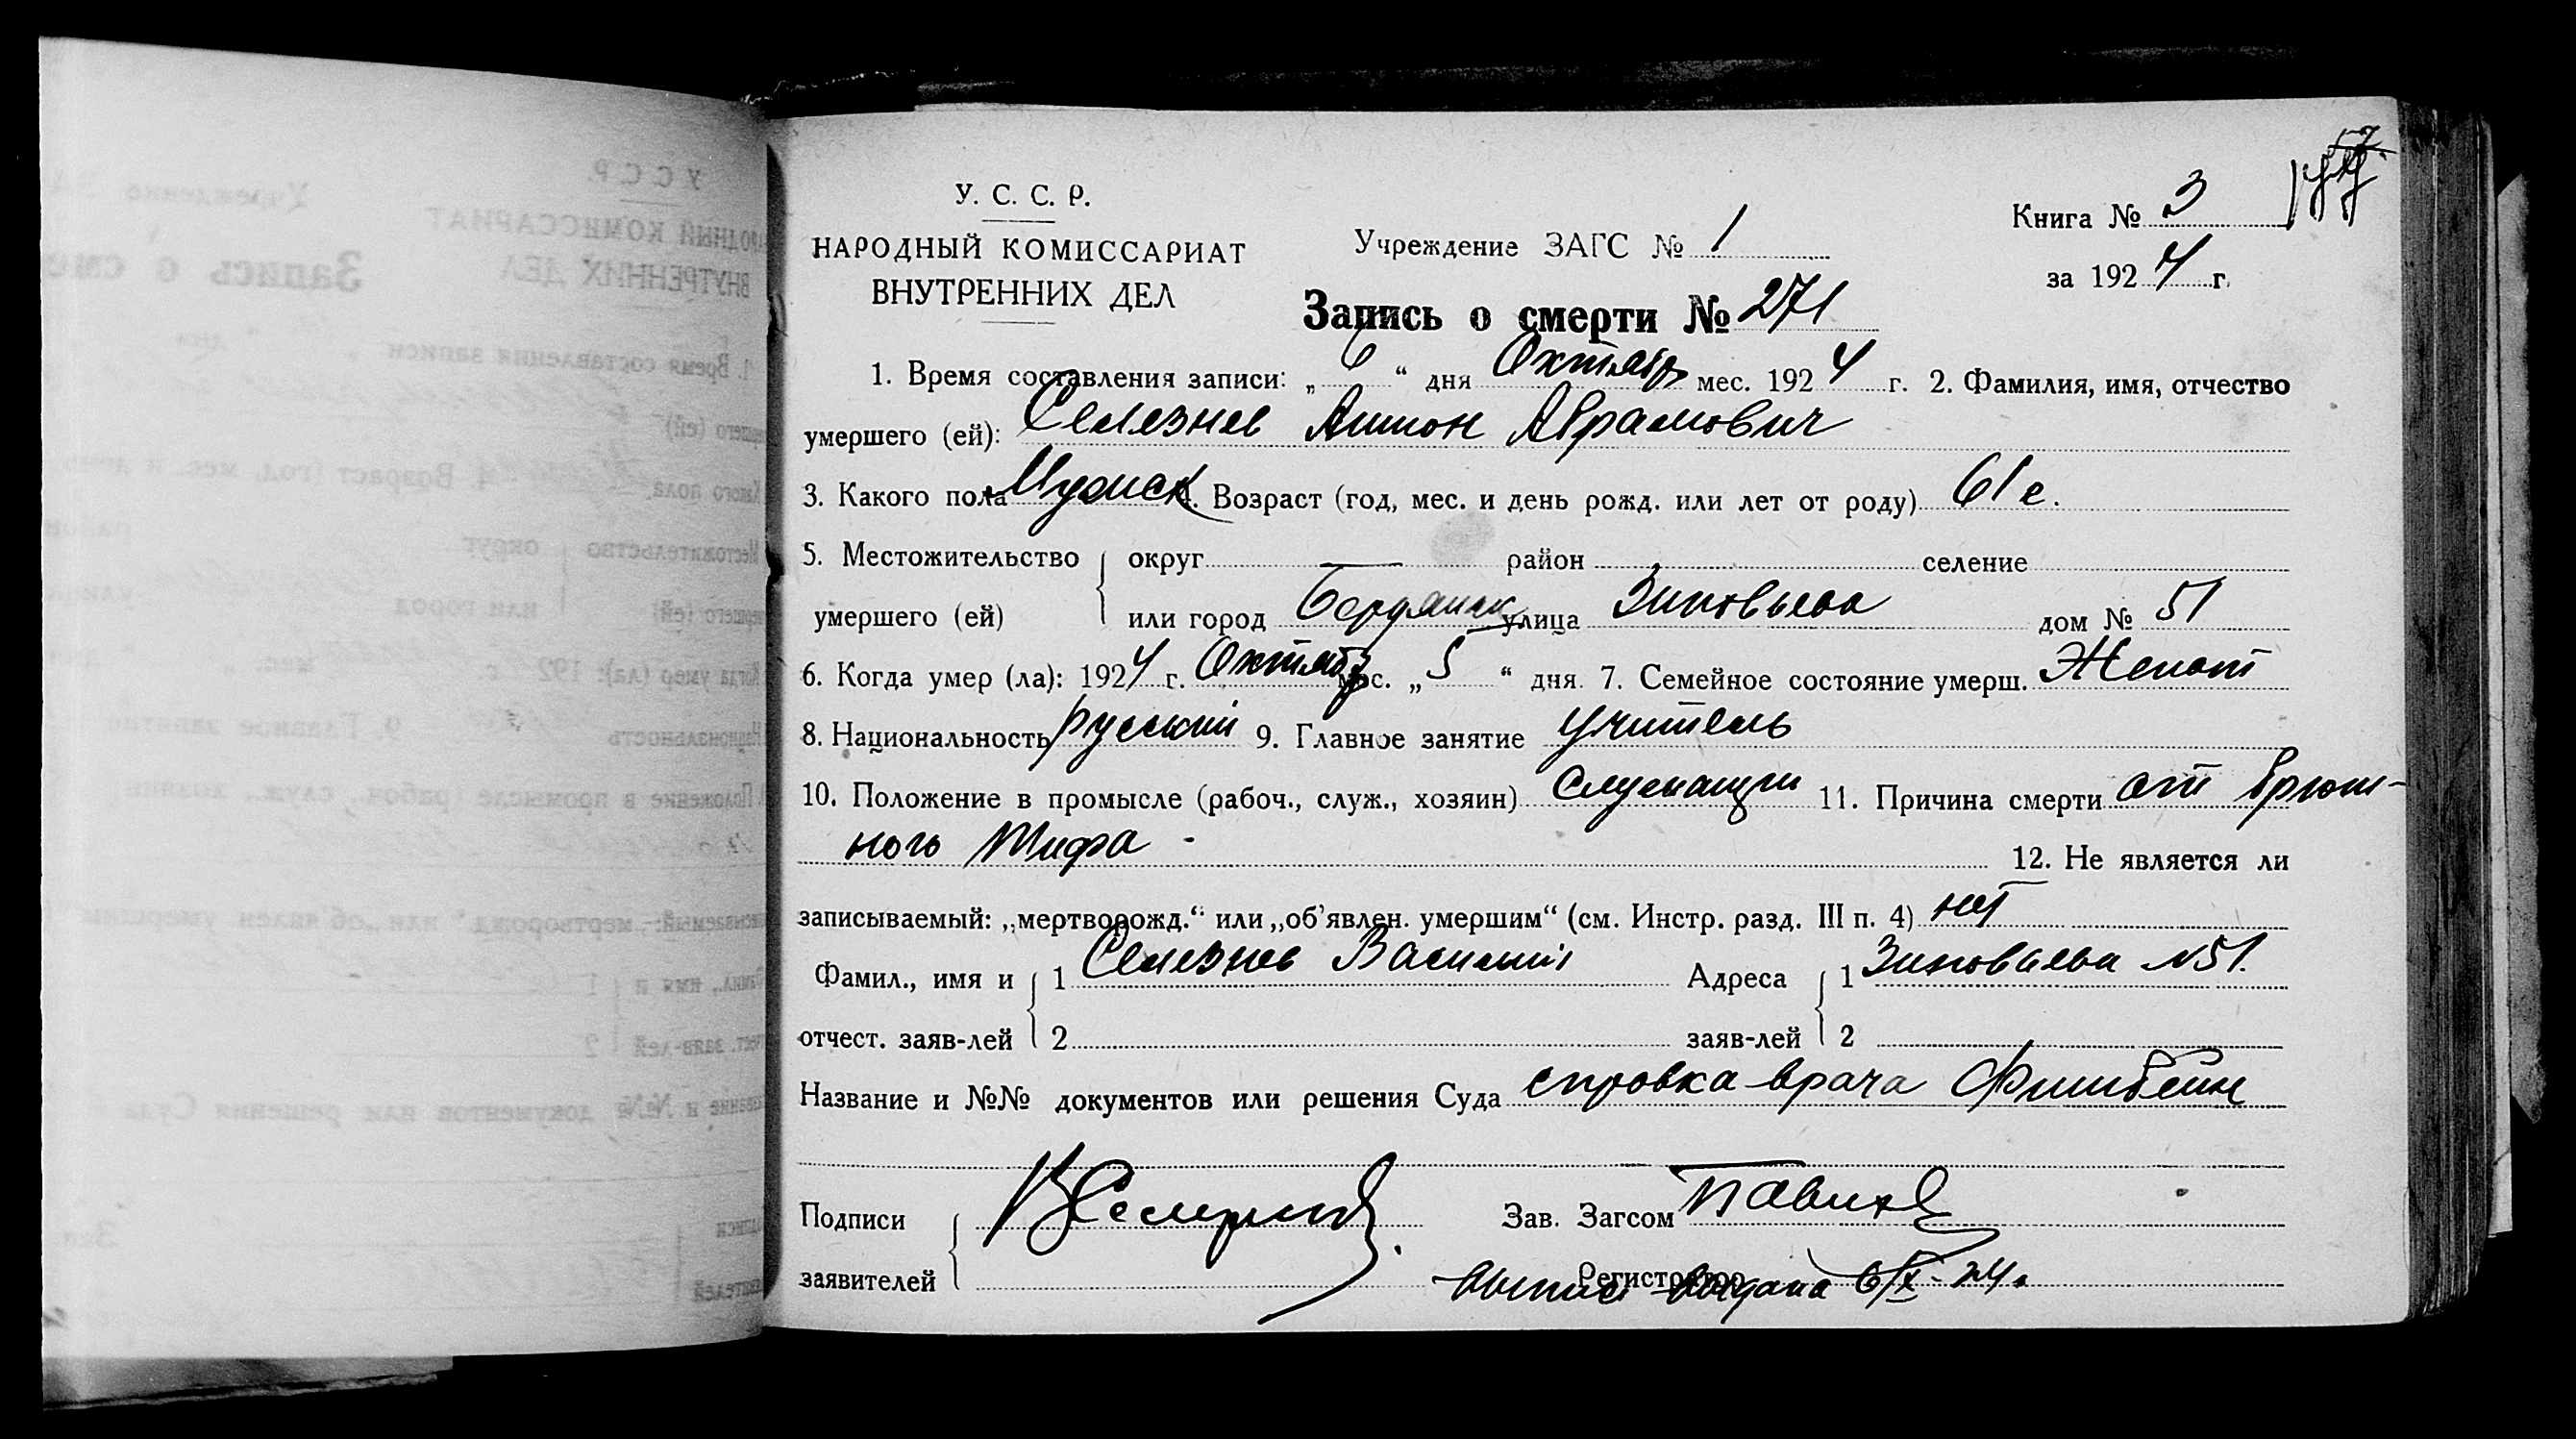 У. С. С. Р.
НАРОДНЫЙ КОМИССАРИАТ
ВНУТРЕННИХ ДЕЛ
Учреждение ЗАГС № 1
Книга № 3
за 1924 г.
Запись о смерти № 271
1. Время составления записи: „ 6 “ дня Октябр мес. 1924 г. 2. Фамилия, имя, отчество
умершего (ей): Селезнев Антон Абрамович
3. Какого пола Мужск 4. Возраст (год, мес. и день рожд. или лет от роду) 61 г.
5. Местожительство умершего (ей) { округ — район селение
или город Бердянск улица Зиновьева дом № 51
6. Когда умер (ла): 1924 г. Октябр мес. „ 5 “ дня. 7. Семейное состояние умерш. Женат
8. Национальность русский 9. Главное занятие учитель
10. Положение в промысле (рабоч., служ., хозяин) Служащий 11. Причина смерти от брюш-
ного тифа - 12. Не является ли
записываемый: „мертворожд.“ или „об’явлен. умершим“ (см. Инстр. разд. III п. 4) нет
Фамил., имя и { 1 Селезнев Василий Адреса { 1 Зиновьева №51.
отчест. заяв-лей { 2 заяв-лей { 2
Название и №№ документов или решения Суда справка врача Фишбейн
Подписи { В Селезнев Зав. Загсом
заявителей { Регистратор
выпись выдана 6/X-24.